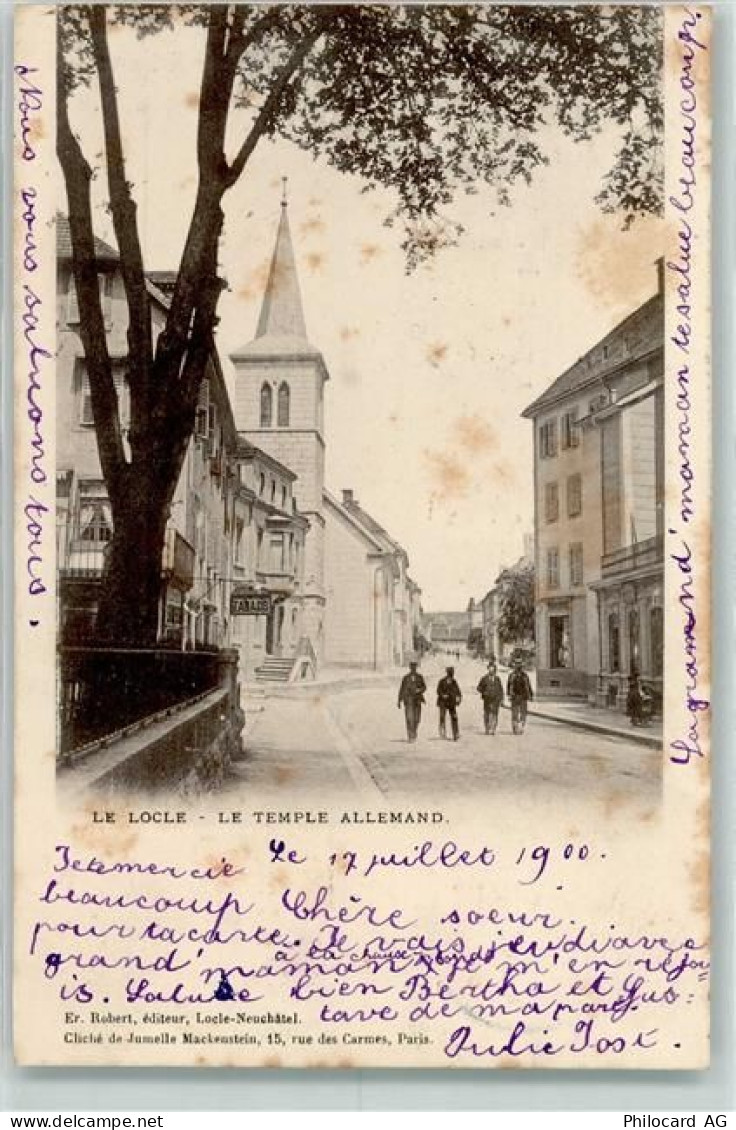 TABACS
LE LOCLE - LE TEMPLE ALLEMAND.
Le 17 juillet 1900.
Je te mercie
beaucoup Chère soeur.
pour ta carte. Je vais jeudi avec
à la chaux de fonds
grand' maman et je m'en réjou
is. Salue bien Bertha et Gus=
tave de ma part.
Julie Jost.
Er. Robert, éditeur, Locle-Neuchâtel.
Cliché de Jumelle Mackenstein, 15, rue des Carmes, Paris.
Nous vous saluons tous.
La grand' maman te salue beaucoup.
Philocard AG